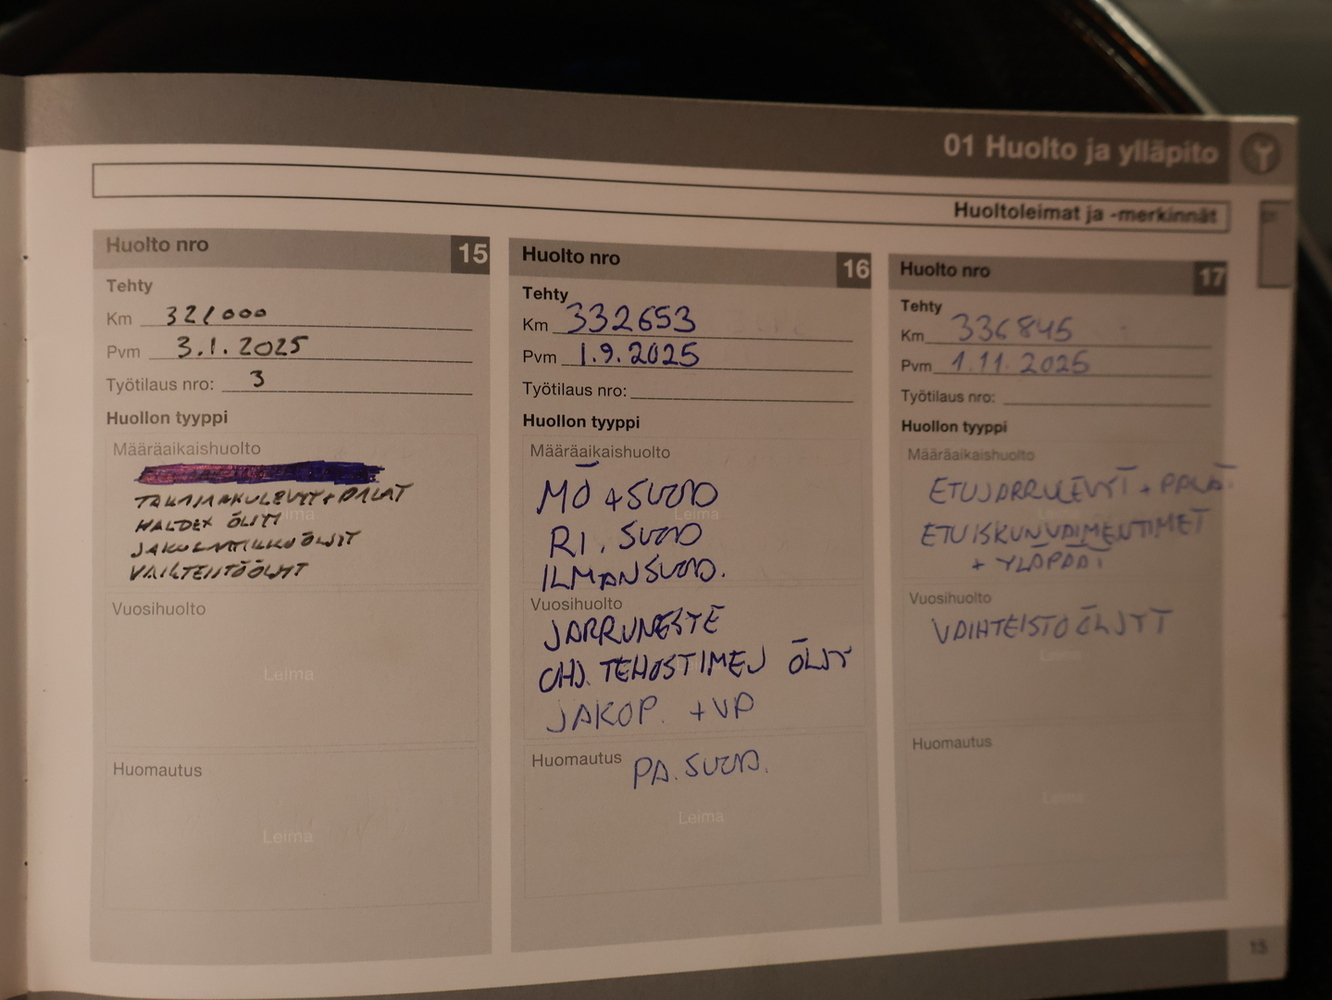 01 Huolto ja ylläpito
Huoltoleimat ja -merkinnät
Huolto nro 15
Tehty
Km 321000
Pvm 3.1.2025
Työtilaus nro: 3
Huollon tyyppi
Määräaikaishuolto
TAKAJARRULEVYT + PALAT
HALDEX ÖLJYT
JAKOLAATIKKOÖLJYT
VAIHTEISTOÖLJYT
Leima
Vuosihuolto
Leima
Huomautus
Leima
Huolto nro 16
Tehty
Km 332653
Pvm 1.9.2025
Työtilaus nro:
Huollon tyyppi
Määräaikaishuolto
MÖ + SUOD
Leima
RI. SUOD
ILMANSUOD.
Vuosihuolto
JARRUNESTE
OHJ. TEHOSTIMEN ÖLJY
JAKOP. + VP
Huomautus PA. SUOD.
Leima
Huolto nro 17
Tehty
Km 336845
Pvm 1.11.2025
Työtilaus nro:
Huollon tyyppi
Määräaikaishuolto
ETUJARRULEVYT + PALAT
ETUISKUNVAIMENTIMET
+ YLÄPÄÄT
Vuosihuolto
VAIHTEISTOÖLJYT
Leima
Huomautus
Leima
15